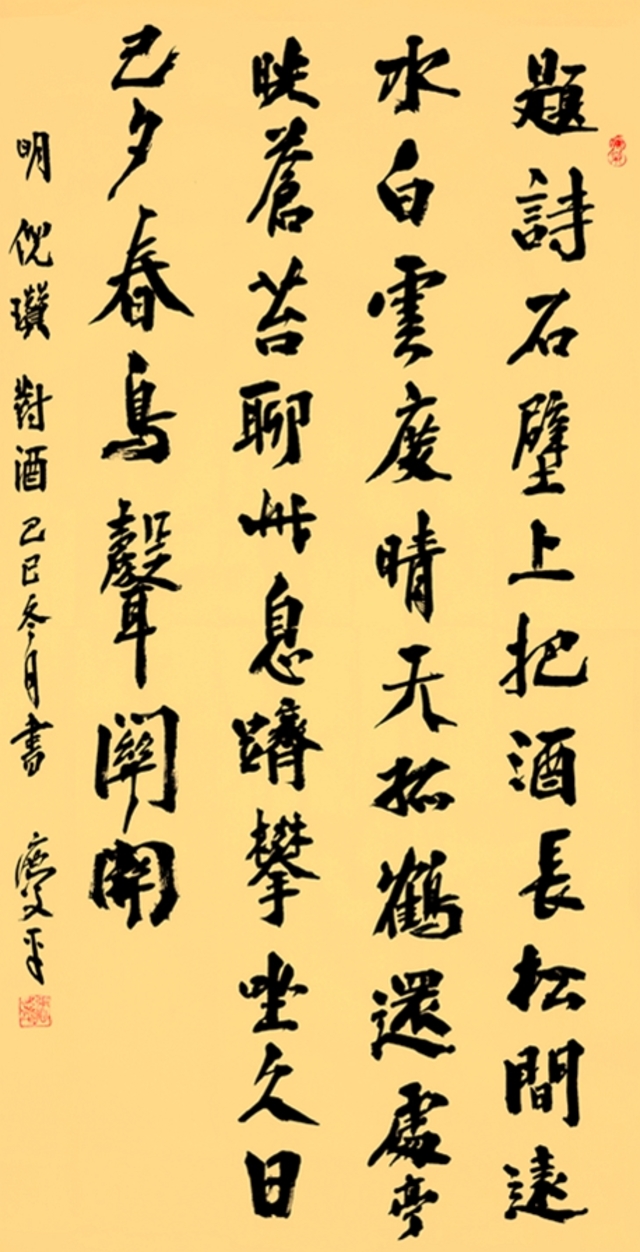 題詩石壁上把酒長松間遠
水白雲度晴天孤鶴還虛亭
映蒼苔聊此息躋攀坐久日
已夕春鳥聲關關
明倪瓚對酒己巳冬月書 文平